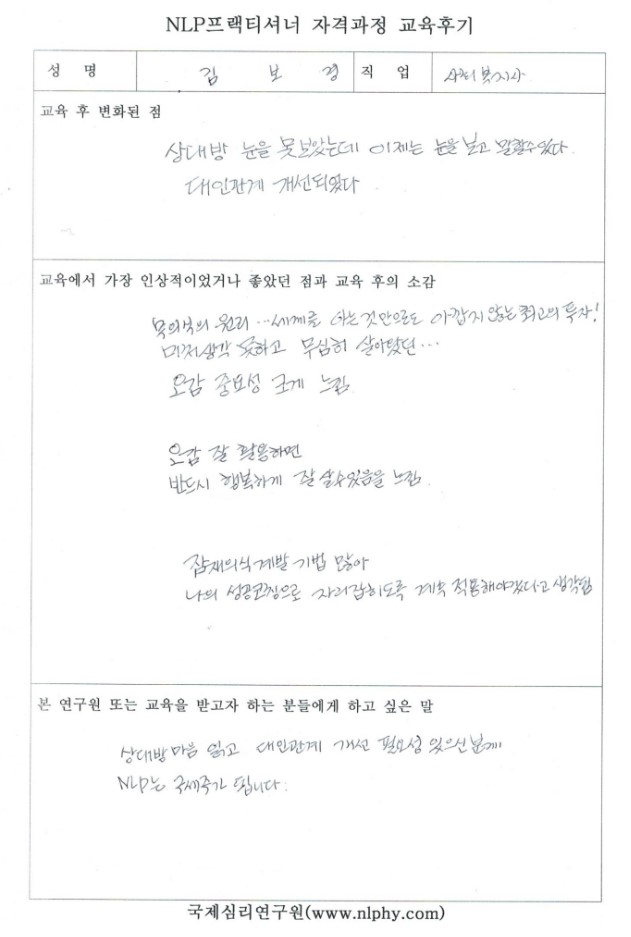 NLP프랙티셔너 자격과정 교육후기
성 명 김 보 경 직 업 사회복지사
교육 후 변화된 점
상대방 눈을 못보았는데 이제는 눈을 보고 말할수있다.
대인관계 개선되었다.
교육에서 가장 인상적이었거나 좋았던 점과 교육 후의 소감
무의식의 원리 … 세계를 아는것만으로도 아깝지 않는 최고의 투자!
미처생각 못하고 무심히 살아왔던…
오감 중요성 크게 느낌.
오감 잘 활용하면
반드시 행복하게 잘 살수있음을 느낌.
잠재의식계발 기법 많아
나의 성공코칭으로 자리잡히도록 계속 적용해야겠다고 생각됨
본 연구원 또는 교육을 받고자 하는 분들에게 하고 싶은 말
상대방마음 읽고 대인관계 개선 필요성 있으신분께
NLP는 구세주가 됩니다.
국제심리연구원(www.nlphy.com)